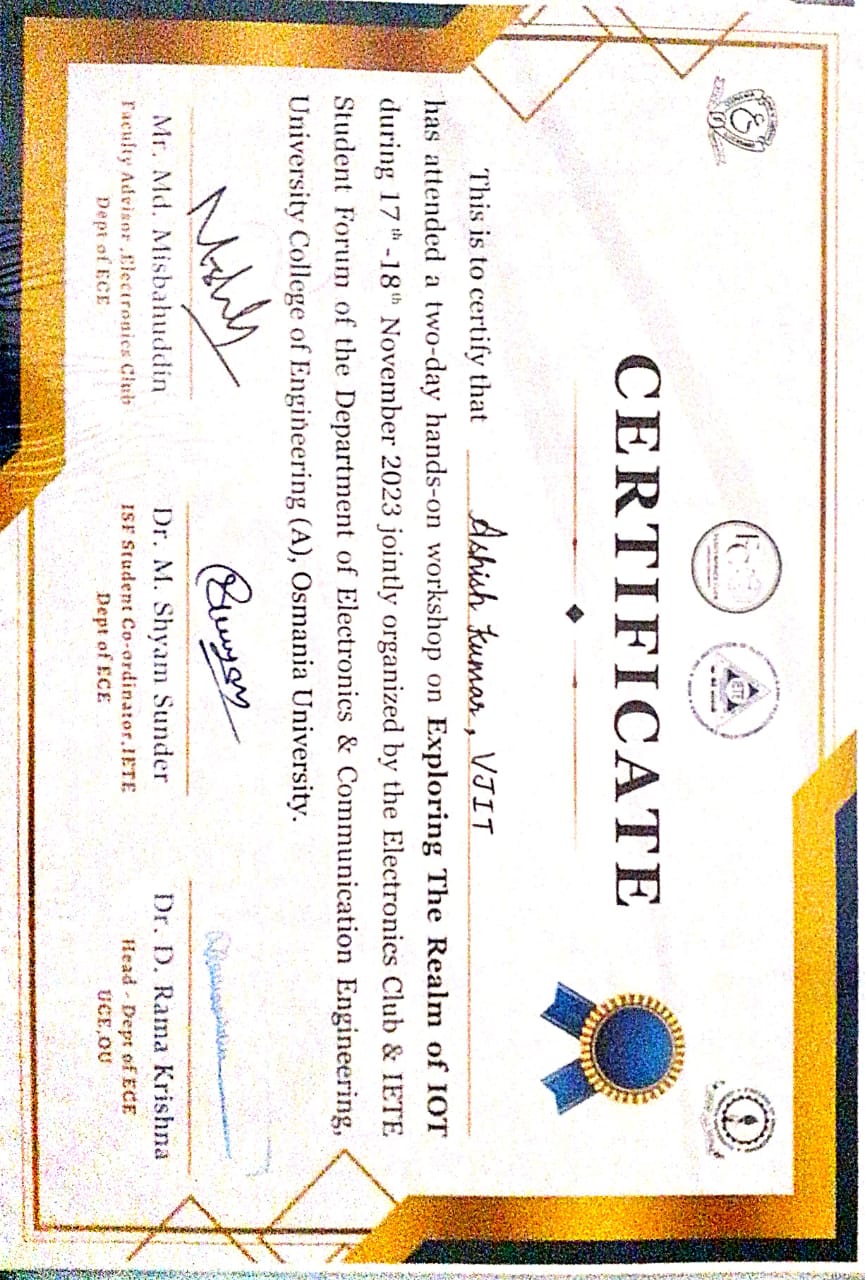 IETE
CERTIFICATE
This is to certify that Ashish Kumar, VJIT
has attended a two-day hands-on workshop on Exploring The Realm of IOT
during 17th -18th November 2023 jointly organized by the Electronics Club & IETE
Student Forum of the Department of Electronics & Communication Engineering,
University College of Engineering (A), Osmania University.
Mr. Md. Misbahuddin
Faculty Advisor ,Electronics Club
Dept of ECE
Dr. M. Shyam Sunder
ISF Student Co-ordinator,IETE
Dept of ECE
Dr. D. Rama Krishna
Head - Dept of ECE
UCE,OU